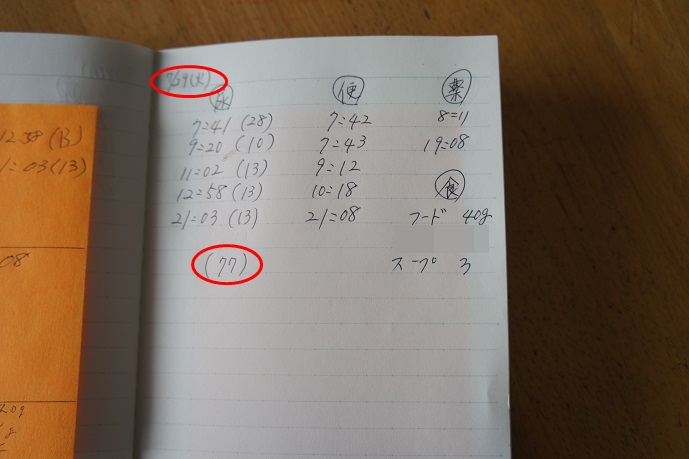 12=58 (13)
1=03(13)
08
7/29(火)
便 薬
7=41 (28) 7=42 8=11
9=20 (10) 7=43 19=08
11=02 (13) 9=12
12=58 (13) 10=18 食
21=03 (13) 21=08 フード 40g
(77) スープ 3